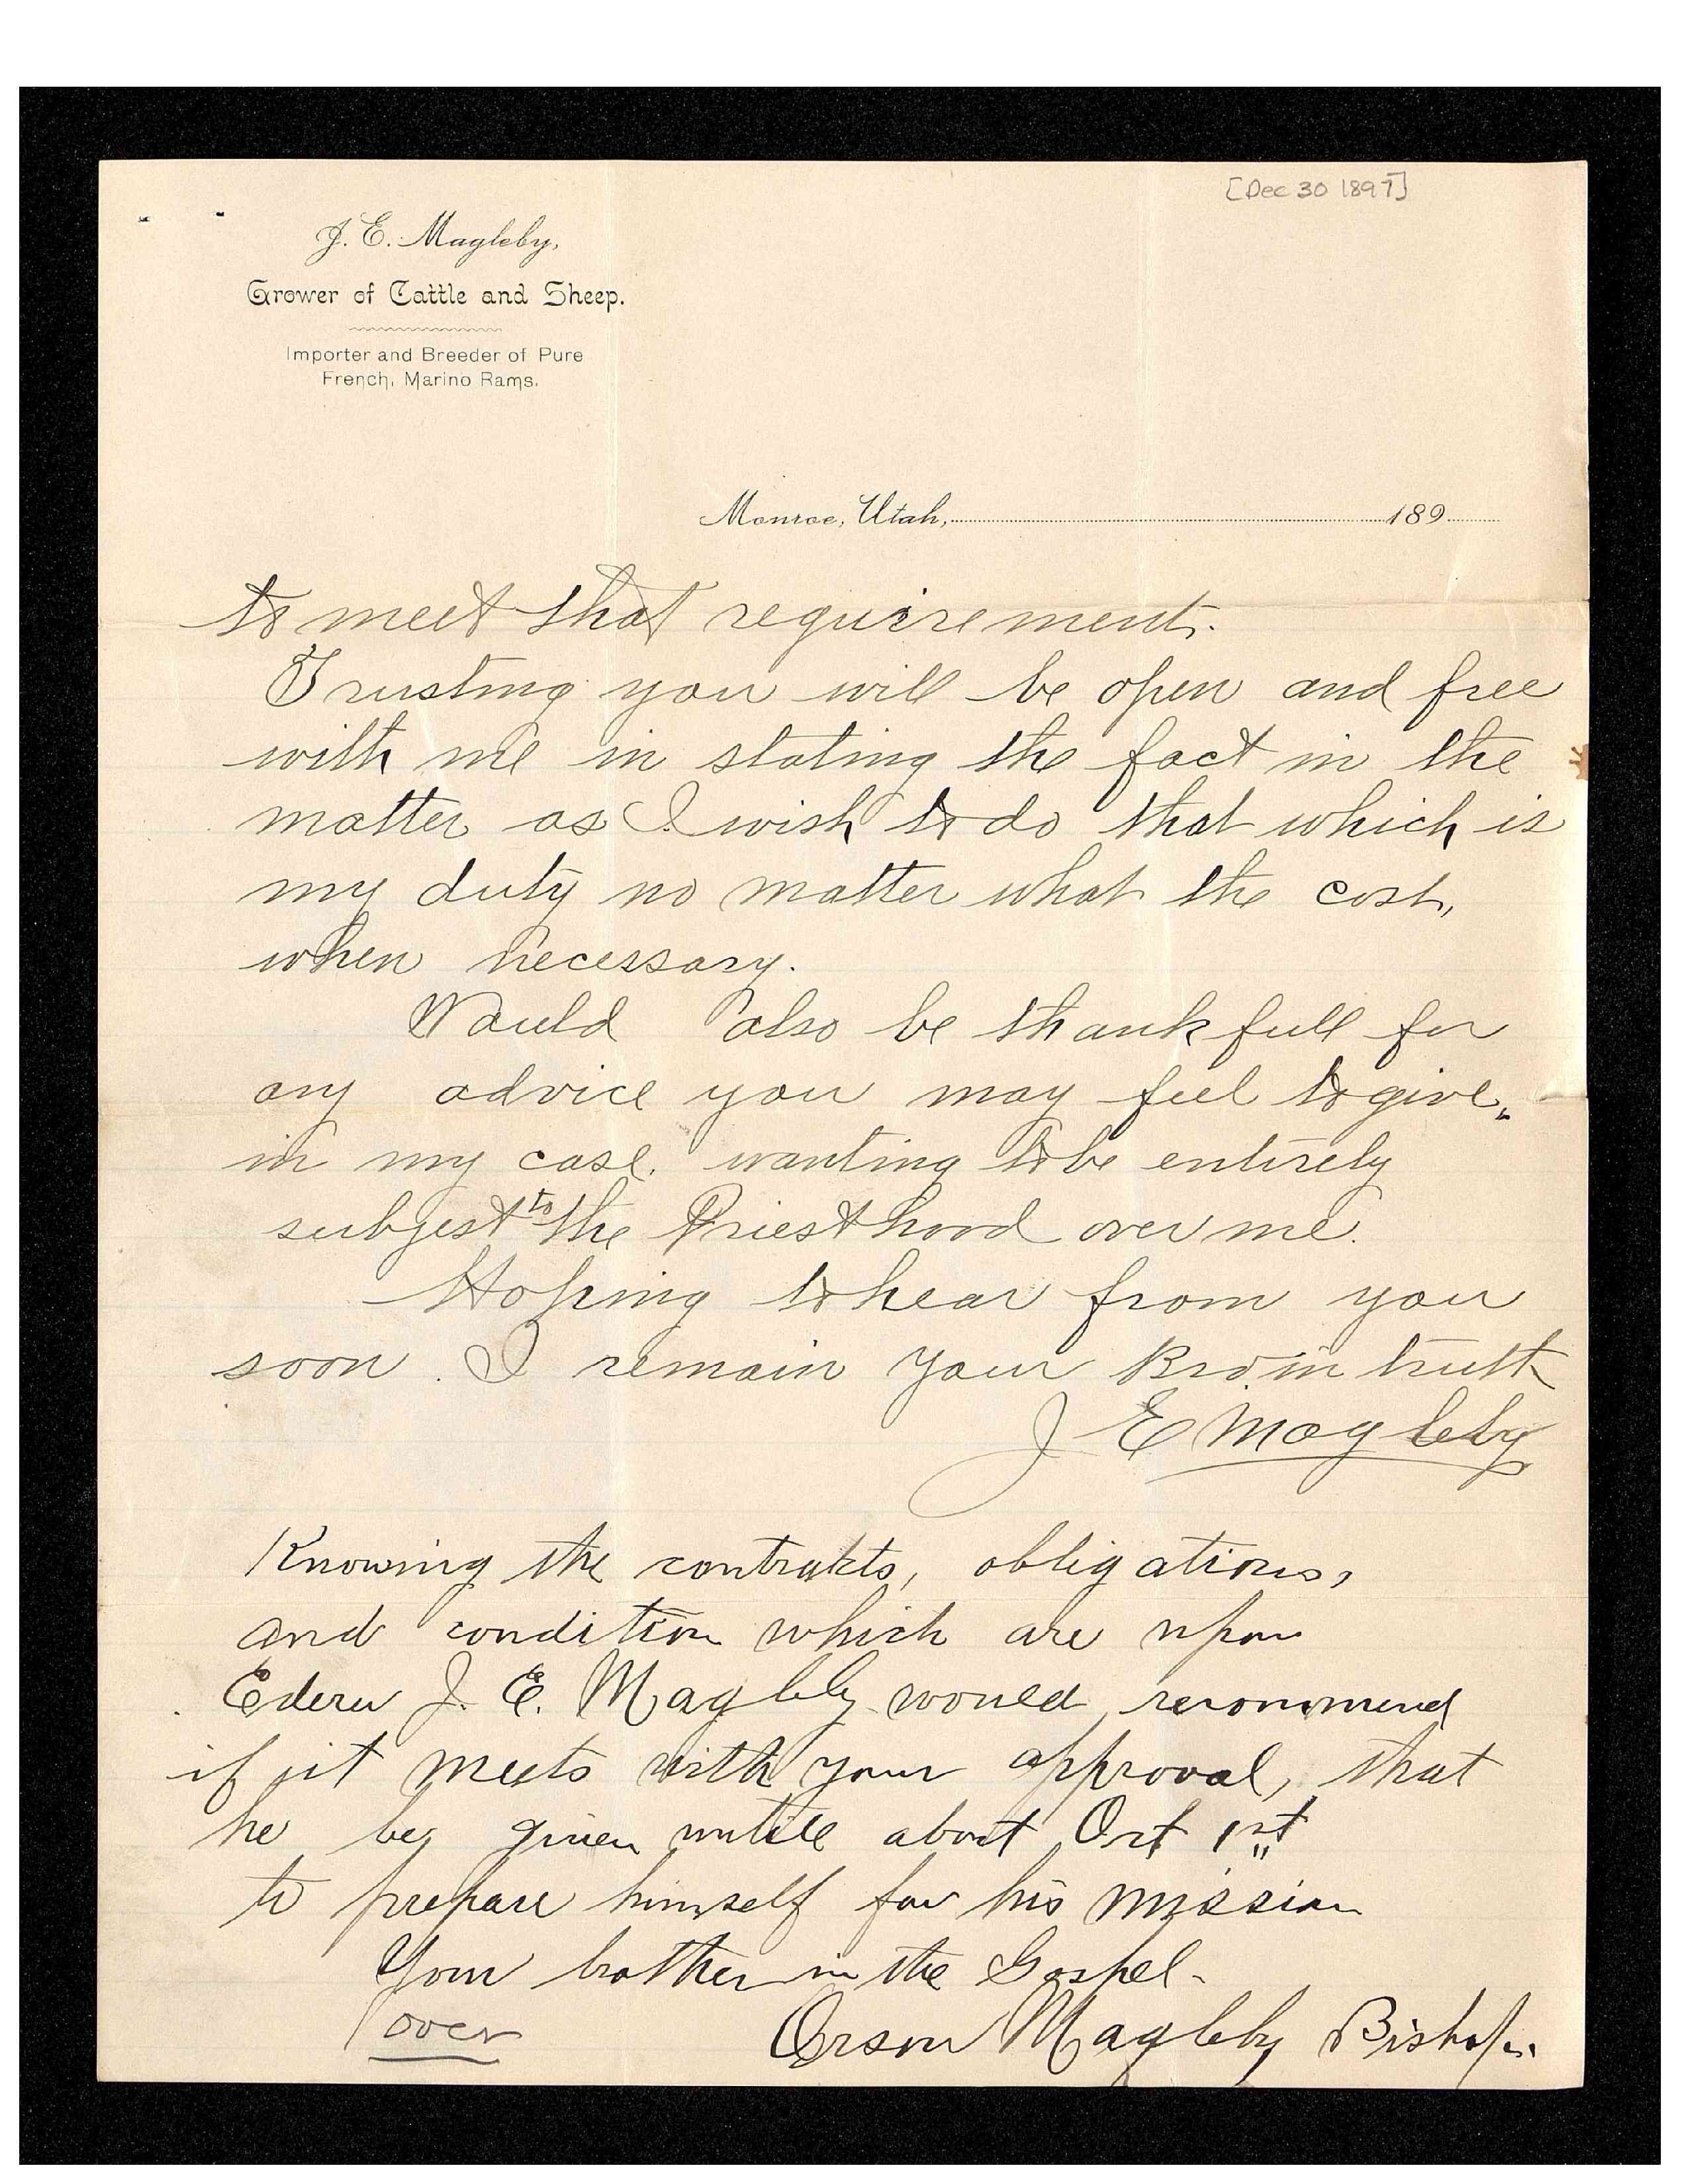 [Dec 30 1897]
J. E. Magleby,
Grower of Cattle and Sheep.
Importer and Breeder of Pure
French, Marino Rams.
Monroe, Utah, 189
to meet that requirement.
Trusting you will be open and free
with me in stating the fact in the
matter as I wish to do that which is
my duty no matter what the cost,
when necessary.
Would also be thankfull for
any advice you may feel to give,
in my case. wanting to be entirely
subjest to the Priesthood over me.
Hoping to hear from you
soon. I remain your Bro in truth
J E Magleby
Knowing the contrakts, obligations,
and condition which are upon
Ederu J. E. Magleby would recommend
if it meets with your approval, that
he be given untill about Oct 1st
to prepare himself for his mission
Your brother in the Gospel-
over
Orson Magleby Bishop.